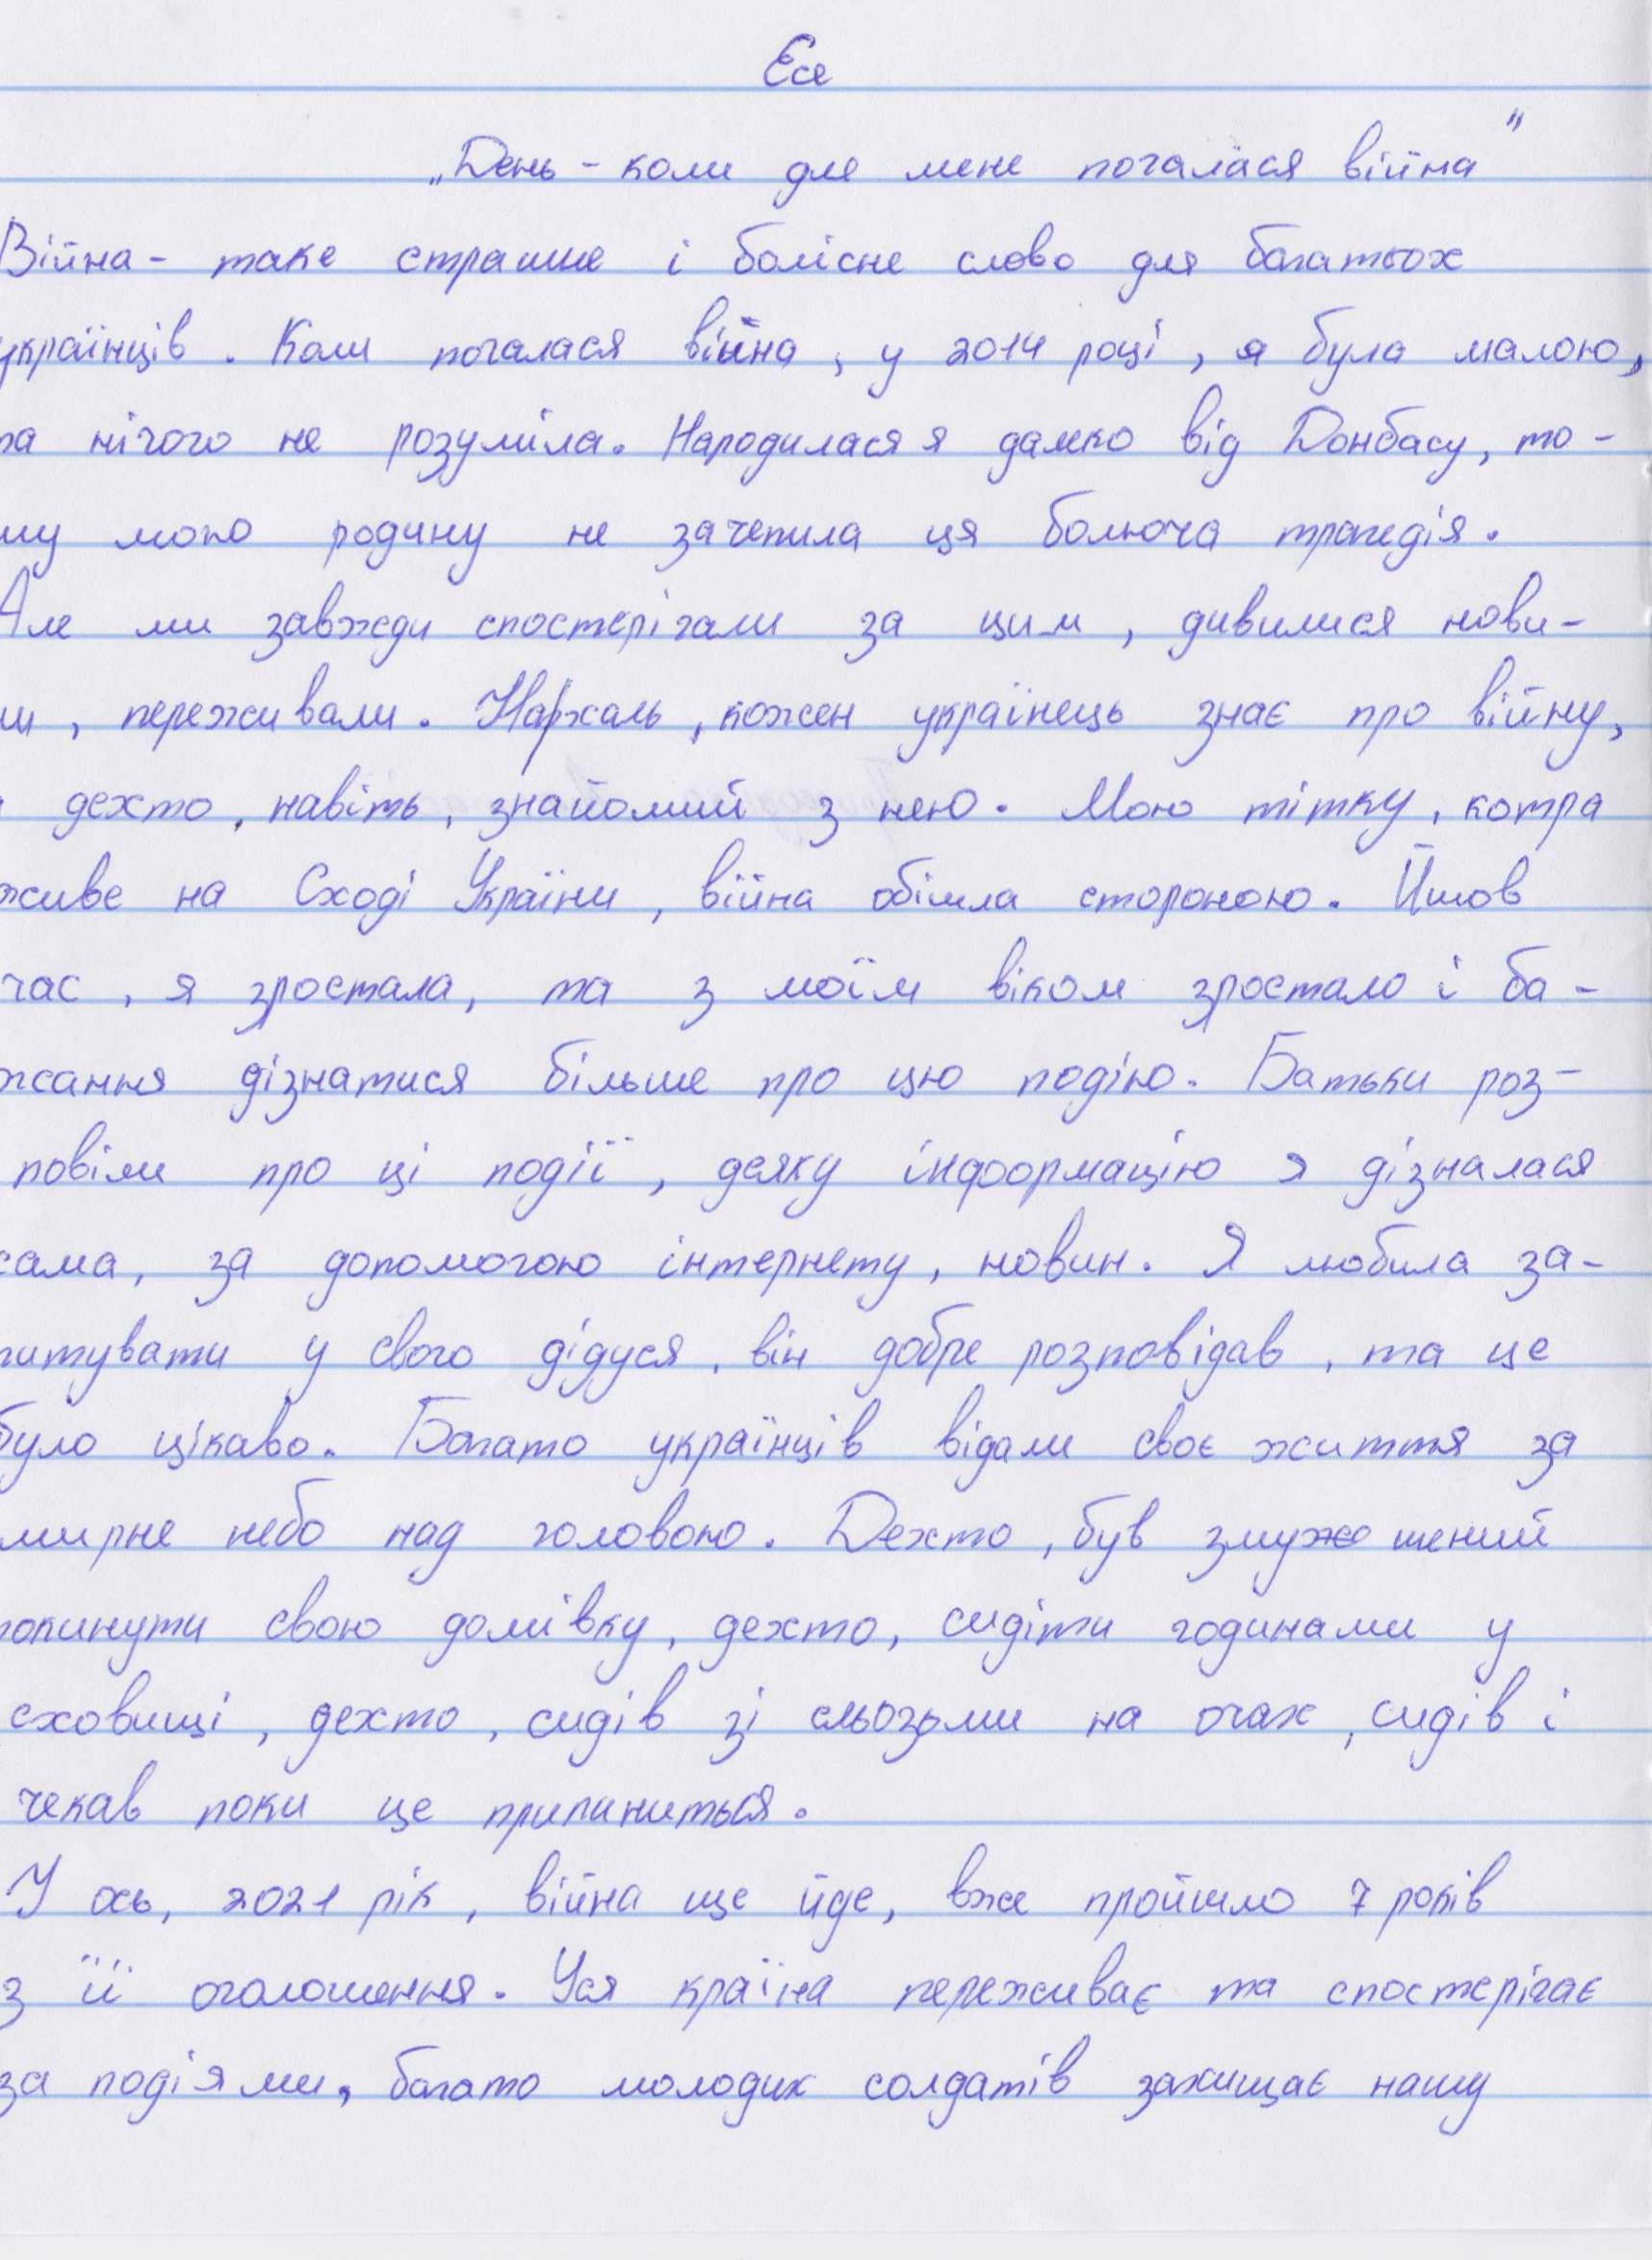 Есе
„День - коли для мене почалася війна"
Війна - таке страшне і болісне слово для багатьох
українців. Коли почалася війна, у 2014 році, я була малою,
та нічого не розуміла. Народилася я далеко від Донбасу, то-
му мою родину не зачепила ця болюча трагедія.
Але ми завжди спостерігали за цим, дивилися нови-
ни, переживали. На жаль, кожен українець знає про війну,
а дехто, навіть, знайомий з нею. Мою тітку, котра
живе на Сході України, війна обішла стороною. Йшов
час, я зростала, та з моїм віком зростало і ба-
жання дізнатися більше про цю подію. Батьки роз-
повіли про ці події, деяку інформацію я дізналася
сама, за допомогою інтернету, новин. Я любила за-
питувати у свого дідуся, він добре розповідав, та це
було цікаво. Багато українців відали своє життя за
мирне небо над головою. Дехто, був змушений
покинути свою домівку, дехто, сидіти годинами у
сховищі, дехто, сидів зі сльозами на очах, сидів і
чекав поки це припиниться.
І ось, 2021 рік, війна ще йде, вже пройшло 7 років
з її оголошення. Уся країна переживає та спостерігає
за подіями, багато молодих солдатів захищає нашу